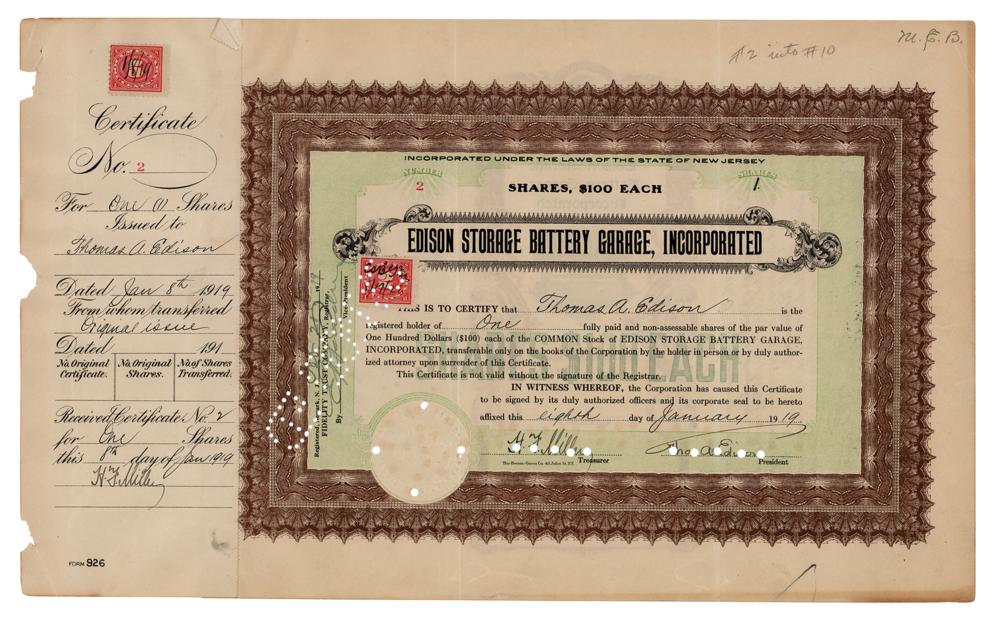 1/8/19
Certificate
No. 2
For One (1) Shares
Issued to
Thomas A. Edison
Dated Jan 8th 1919
From whom transferred
Original issue
Dated 191
No. Original Certificate.
No. Original Shares.
No. of Shares Transferred.
Received Certificate No. 2
for One Shares
this 8th day of Jan 1919
H. F. Miller
FORM 926
#2 into #10
M. E. B.
INCORPORATED UNDER THE LAWS OF THE STATE OF NEW JERSEY
NUMBER
2
SHARES, $100 EACH
SHARES
1
EDISON STORAGE BATTERY GARAGE, INCORPORATED
THIS IS TO CERTIFY that Thomas A. Edison is the
registered holder of One fully paid and non-assessable shares of the par value of
One Hundred Dollars ($100) each of the COMMON Stock of EDISON STORAGE BATTERY GARAGE,
INCORPORATED, transferable only on the books of the Corporation by the holder in person or by duly author-
ized attorney upon surrender of this Certificate.
This Certificate is not valid without the signature of the Registrar.
IN WITNESS WHEREOF, the Corporation has caused this Certificate
to be signed by its duly authorized officers and its corporate seal to be hereto
affixed this eighth day of January 1919.
H. F. Miller
Treasurer
Thos A Edison
President
Registered, Newark, N. J. 19
FIDELITY TRUST COMPANY, Registrar
By Vice-President